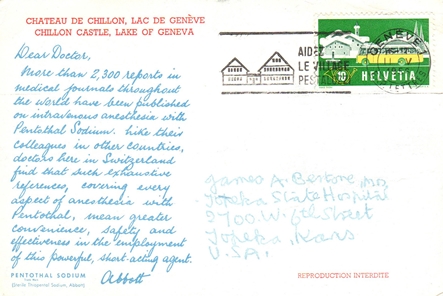 CHATEAU DE CHILLON, LAC DE GENÈVE
CHILLON CASTLE, LAKE OF GENEVA
Dear Doctor,
More than 2,300 reports in
medical journals throughout
the world have been published
on intravenous anesthesia with
Pentothal Sodium. Like their
colleagues in other countries,
doctors here in Switzerland
find that such exhaustive
references, covering every
aspect of anesthesia with
Pentothal, mean greater
convenience, safety and
effectiveness in the employment
of this powerful, short-acting agent.
Abbott
PENTOTHAL SODIUM
(Sterile Thiopental Sodium, Abbott)
AIDEZ
LE VILLAGE
GENÈVE
10
HELVETIA
James A. Bertone, MD.
Topeka State Hospital
2700 W. 6th Street
Topeka, Kans
U.S.A.
REPRODUCTION INTERDITE